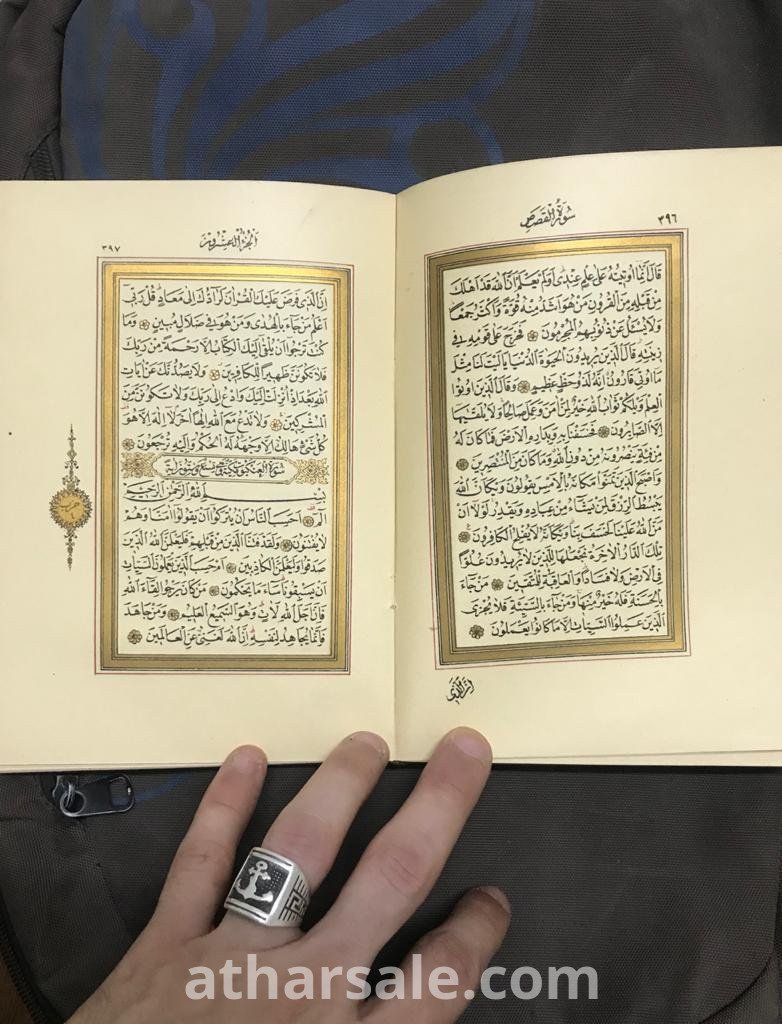 ٣٩٦
سُورَةُ الْقَصَصِ
قَالَ اِنَّمَا اُو۫ت۪يتُهُ عَلٰى عِلْمٍ عِنْد۪ى اَوَلَمْ يَعْلَمْ اَنَّ اللّٰهَ قَدْ اَهْلَكَ
مِنْ قَبْلِه۪ مِنَ الْقُرُونِ مَنْ هُوَ اَشَدُّ مِنْهُ قُوَّةً وَاَكْثَرُ جَمْعًا
وَلَا يُسْـَٔلُ عَنْ ذُنُوبِهِمُ الْمُجْرِمُونَ فَخَرَجَ عَلٰى قَوْمِه۪ ف۪ى
ز۪ينَتِه۪ قَالَ الَّذ۪ينَ يُر۪يدُونَ الْحَيٰوةَ الدُّنْيَا يَا لَيْتَ لَنَا مِثْلَ
مَا اُو۫تِىَ قَارُونُ اِنَّهُ لَذُو حَظٍّ عَظ۪يمٍ وَقَالَ الَّذ۪ينَ اُو۫تُوا
الْعِلْمَ وَيْلَكُمْ ثَوَابُ اللّٰهِ خَيْرٌ لِمَنْ اٰمَنَ وَعَمِلَ صَالِحًا وَلَا يُلَقّٰيهَا
اِلَّا الصَّابِرُونَ فَخَسَفْنَا بِه۪ وَبِدَارِهِ الْاَرْضَ فَمَا كَانَ لَهُ
مِنْ فِئَةٍ يَنْصُرُونَهُ مِنْ دُونِ اللّٰهِ وَمَا كَانَ مِنَ الْمُنْتَصِر۪ينَ
وَاَصْبَحَ الَّذ۪ينَ تَمَنَّوْا مَكَانَهُ بِالْاَمْسِ يَقُولُونَ وَيْكَاَنَّ اللّٰهَ
يَبْسُطُ الرِّزْقَ لِمَنْ يَشَاءُ مِنْ عِبَادِه۪ وَيَقْدِرُ لَوْلَا اَنْ
مَنَّ اللّٰهُ عَلَيْنَا لَخَسَفَ بِنَا وَيْكَاَنَّهُ لَا يُفْلِحُ الْكَافِرُونَ
تِلْكَ الدَّارُ الْاٰخِرَةُ نَجْعَلُهَا لِلَّذ۪ينَ لَا يُر۪يدُونَ عُلُوًّا
فِى الْاَرْضِ وَلَا فَسَادًا وَالْعَاقِبَةُ لِلْمُتَّق۪ينَ مَنْ جَاءَ
بِالْحَسَنَةِ فَلَهُ خَيْرٌ مِنْهَا وَمَنْ جَاءَ بِالسَّيِّئَةِ فَلَا يُجْزَى
الَّذ۪ينَ عَمِلُوا السَّيِّـَٔاتِ اِلَّا مَا كَانُوا يَعْمَلُونَ
اِنَّ الَّذ۪ى
٣٩٧
اَلْجُزْءُ الْعِشْرُونَ
اِنَّ الَّذ۪ى فَرَضَ عَلَيْكَ الْقُرْاٰنَ لَرَادُّكَ اِلٰى مَعَادٍ قُلْ رَبّ۪ى
اَعْلَمُ مَنْ جَاءَ بِالْهُدٰى وَمَنْ هُوَ ف۪ى ضَلَالٍ مُب۪ينٍ وَمَا
كُنْتَ تَرْجُوا اَنْ يُلْقٰى اِلَيْكَ الْكِتَابُ اِلَّا رَحْمَةً مِنْ رَبِّكَ
فَلَا تَكُونَنَّ ظَه۪يرًا لِلْكَافِر۪ينَ وَلَا يَصُدُّنَّكَ عَنْ اٰيَاتِ
اللّٰهِ بَعْدَ اِذْ اُنْزِلَتْ اِلَيْكَ وَادْعُ اِلٰى رَبِّكَ وَلَا تَكُونَنَّ مِنَ
الْمُشْرِك۪ينَ وَلَا تَدْعُ مَعَ اللّٰهِ اِلٰهًا اٰخَرَ لَا اِلٰهَ اِلَّا هُوَ
كُلُّ شَىْءٍ هَالِكٌ اِلَّا وَجْهَهُ لَهُ الْحُكْمُ وَاِلَيْهِ تُرْجَعُونَ
سُورَةُ الْعَنْكَبُوتِ مَكِّيَّةٌ وَهِىَ تِسْعٌ وَسِتُّونَ اٰيَةً
بِسْمِ اللّٰهِ الرَّحْمٰنِ الرَّح۪يمِ
الٓمٓ اَحَسِبَ النَّاسُ اَنْ يُتْرَكُوا اَنْ يَقُولُوا اٰمَنَّا وَهُمْ
لَا يُفْتَنُونَ وَلَقَدْ فَتَنَّا الَّذ۪ينَ مِنْ قَبْلِهِمْ فَلَيَعْلَمَنَّ اللّٰهُ الَّذ۪ينَ
صَدَقُوا وَلَيَعْلَمَنَّ الْكَاذِب۪ينَ اَمْ حَسِبَ الَّذ۪ينَ يَعْمَلُونَ السَّيِّـَٔاتِ
اَنْ يَسْبِقُونَا سَاءَ مَا يَحْكُمُونَ مَنْ كَانَ يَرْجُوا لِقَاءَ اللّٰهِ
فَاِنَّ اَجَلَ اللّٰهِ لَاٰتٍ وَهُوَ السَّم۪يعُ الْعَل۪يمُ وَمَنْ جَاهَدَ
فَاِنَّمَا يُجَاهِدُ لِنَفْسِه۪ اِنَّ اللّٰهَ لَغَنِىٌّ عَنِ الْعَالَم۪ينَ
حزب
atharsale.com